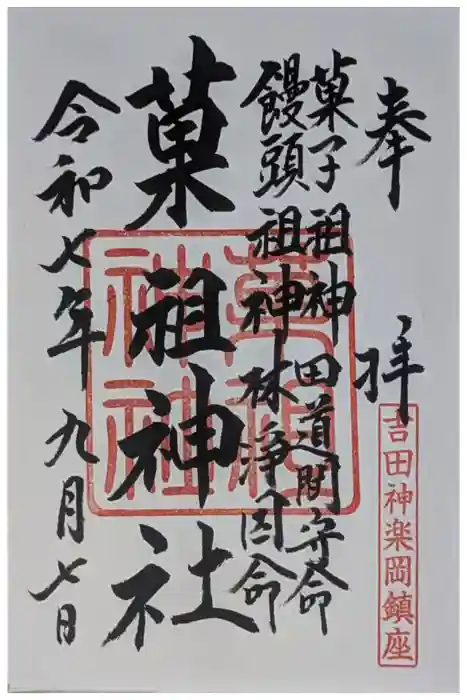 奉拝
吉田神楽岡鎮座
菓子祖神 田道間守命
饅頭祖神 林浄因命
菓祖神社
菓祖神社
令和七年九月七日